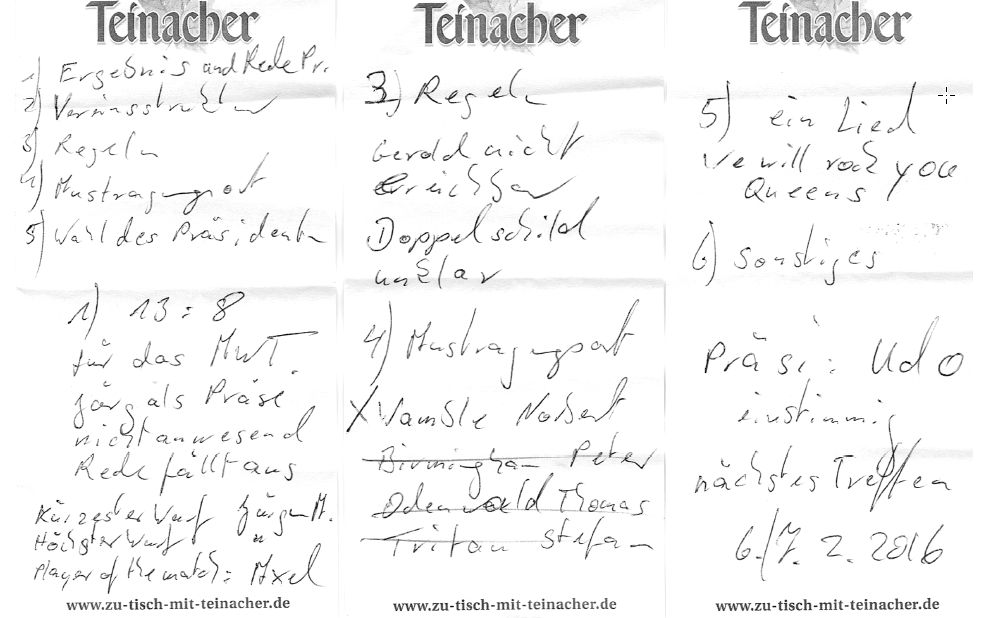 Teinacher
1) Ergebnis und Rede Pr.
2) Vereinsstruktur
3) Regeln
4) Austragungsort
5) Wahl des Präsidenten
1) 13:8
für das MWT.
Jörg als Präse
nicht anwesend
Rede fällt aus
Kürzester Wurf Jürgen M.
Höchster Wurf "
Player of the match: Axel
www.zu-tisch-mit-teinacher.de
Teinacher
3) Regeln
Gerold nicht
Erreichbar
Doppelschild
unklar
4) Austragungsort
X Norbert
Birmingham Peter
Odenwald Thomas
Tritau Stefan
www.zu-tisch-mit-teinacher.de
Teinacher
5) ein Lied
We will rock you
Queens
6) sonstiges
Präsi: Udo
einstimmig
nächstes Treffen
6./7. 2. 2016
www.zu-tisch-mit-teinacher.de